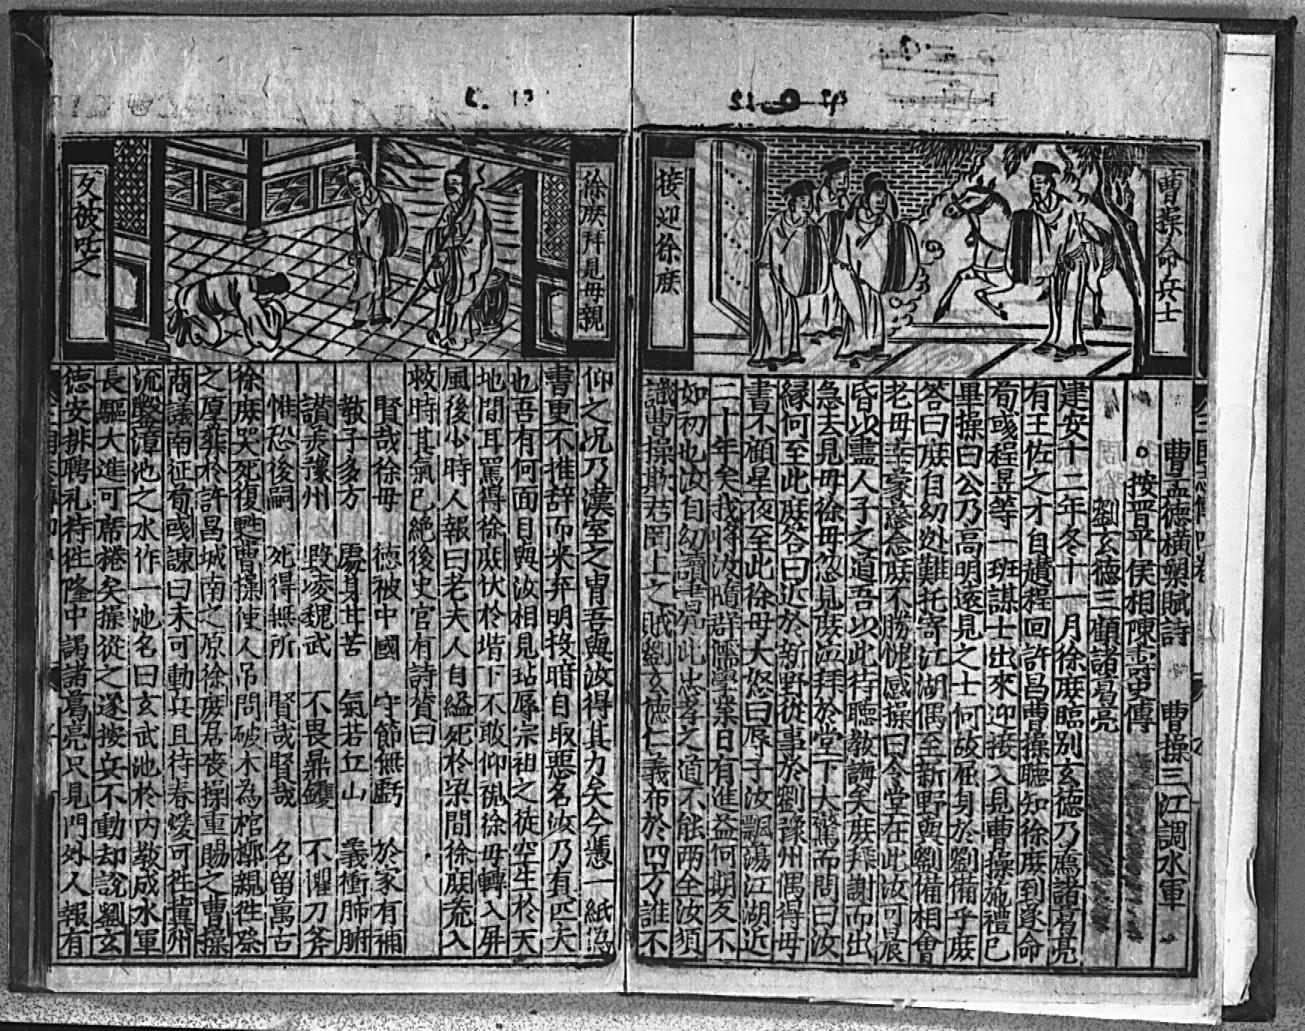 曹操命兵士
接迎徐庶
曹孟德橫槊賦詩 曹操三江調水軍
按晋平侯相陳壽史傳
劉玄德三顧諸葛亮
建安十二年冬十一月徐庶臨別玄德乃薦諸葛亮
有王佐之才自趲程回許昌曹操聽知徐庶到遂命
荀彧程昱等一班謀士出來迎接入見曹操施禮已
畢操曰公乃高明遠見之士何故屈身於劉備乎庶
答曰庶自幼迯難托寄江湖偶至新野與劉備相會
老母幸蒙慈念庶不勝愧感操曰令堂在此汝可晨
昏以盡人子之道吾以此待聽教誨矣庶拜謝而出
急去見母徐母忽見庶泣拜於堂下大驚而問曰汝
縁何至此庶答曰近於新野從事於劉豫州偶得母
書不顧星夜至此徐母大怒曰辱子汝飄蕩江湖近
二十年矣我将汝隨群儒學業日有進益何期反不
如初也汝自幼讀書湏此忠孝之道不能两全汝須
識曹操欺君罔上之賊劉玄德仁義布於四方誰不
徐庶拜見母親
反被叱之
仰之况乃漢室之胄吾與汝得其力矣今憑一紙
書更不推辞而來弃明投暗自取惡名汝乃真匹夫
也吾有何面目與汝相見玷辱宗祖之徒空生於天
地間耳罵得徐庶伏於堦下不敢仰視徐母轉入屏
風後少時人報曰老夫人自縊死於梁間徐庶荒入
救時其氣已絶後史官有詩贊曰
賢哉徐母 徳被中國 守節無虧 於家有補
教子多方 處身甘苦 氣若丘山 義衝肺腑
讃羙豫州 毀凌魏武 不畏鼎鑊 不懼刀斧
惟恐後嗣 死得無所 賢哉賢哉 名留萬古
徐庶哭死復甦曹操使人吊問破木為棺槨親徃祭
之厚葬於許昌城南之原徐庶居喪操重賜之曹操
商議南征荀彧諫曰未可動兵且待春煖可徃冀州
流鑿漳池之水作一池名曰玄武池於内教成水軍
長驅大進可席捲矣操從之遂按兵不動却說劉玄
德安排聘礼待徃隆中謁諸葛亮只見門外人報有